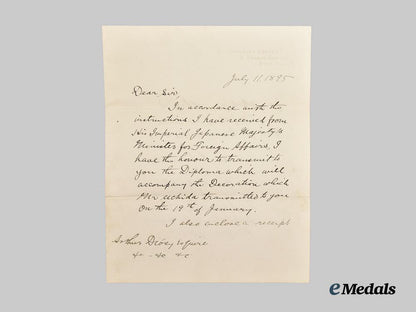 July 11, 1895
Dear Sir,
In accordance with the
instructions I have received from
His Imperial Japanese Majesty's
Minister for Foreign Affairs, I
have the honour to transmit to
you the Diploma which will
accompany the Decoration which
Mr Uchida transmitted to you
on the 19th of January.
I also enclose a receipt
Arthur Diósy Esquire
&c - &c &c
eMedals